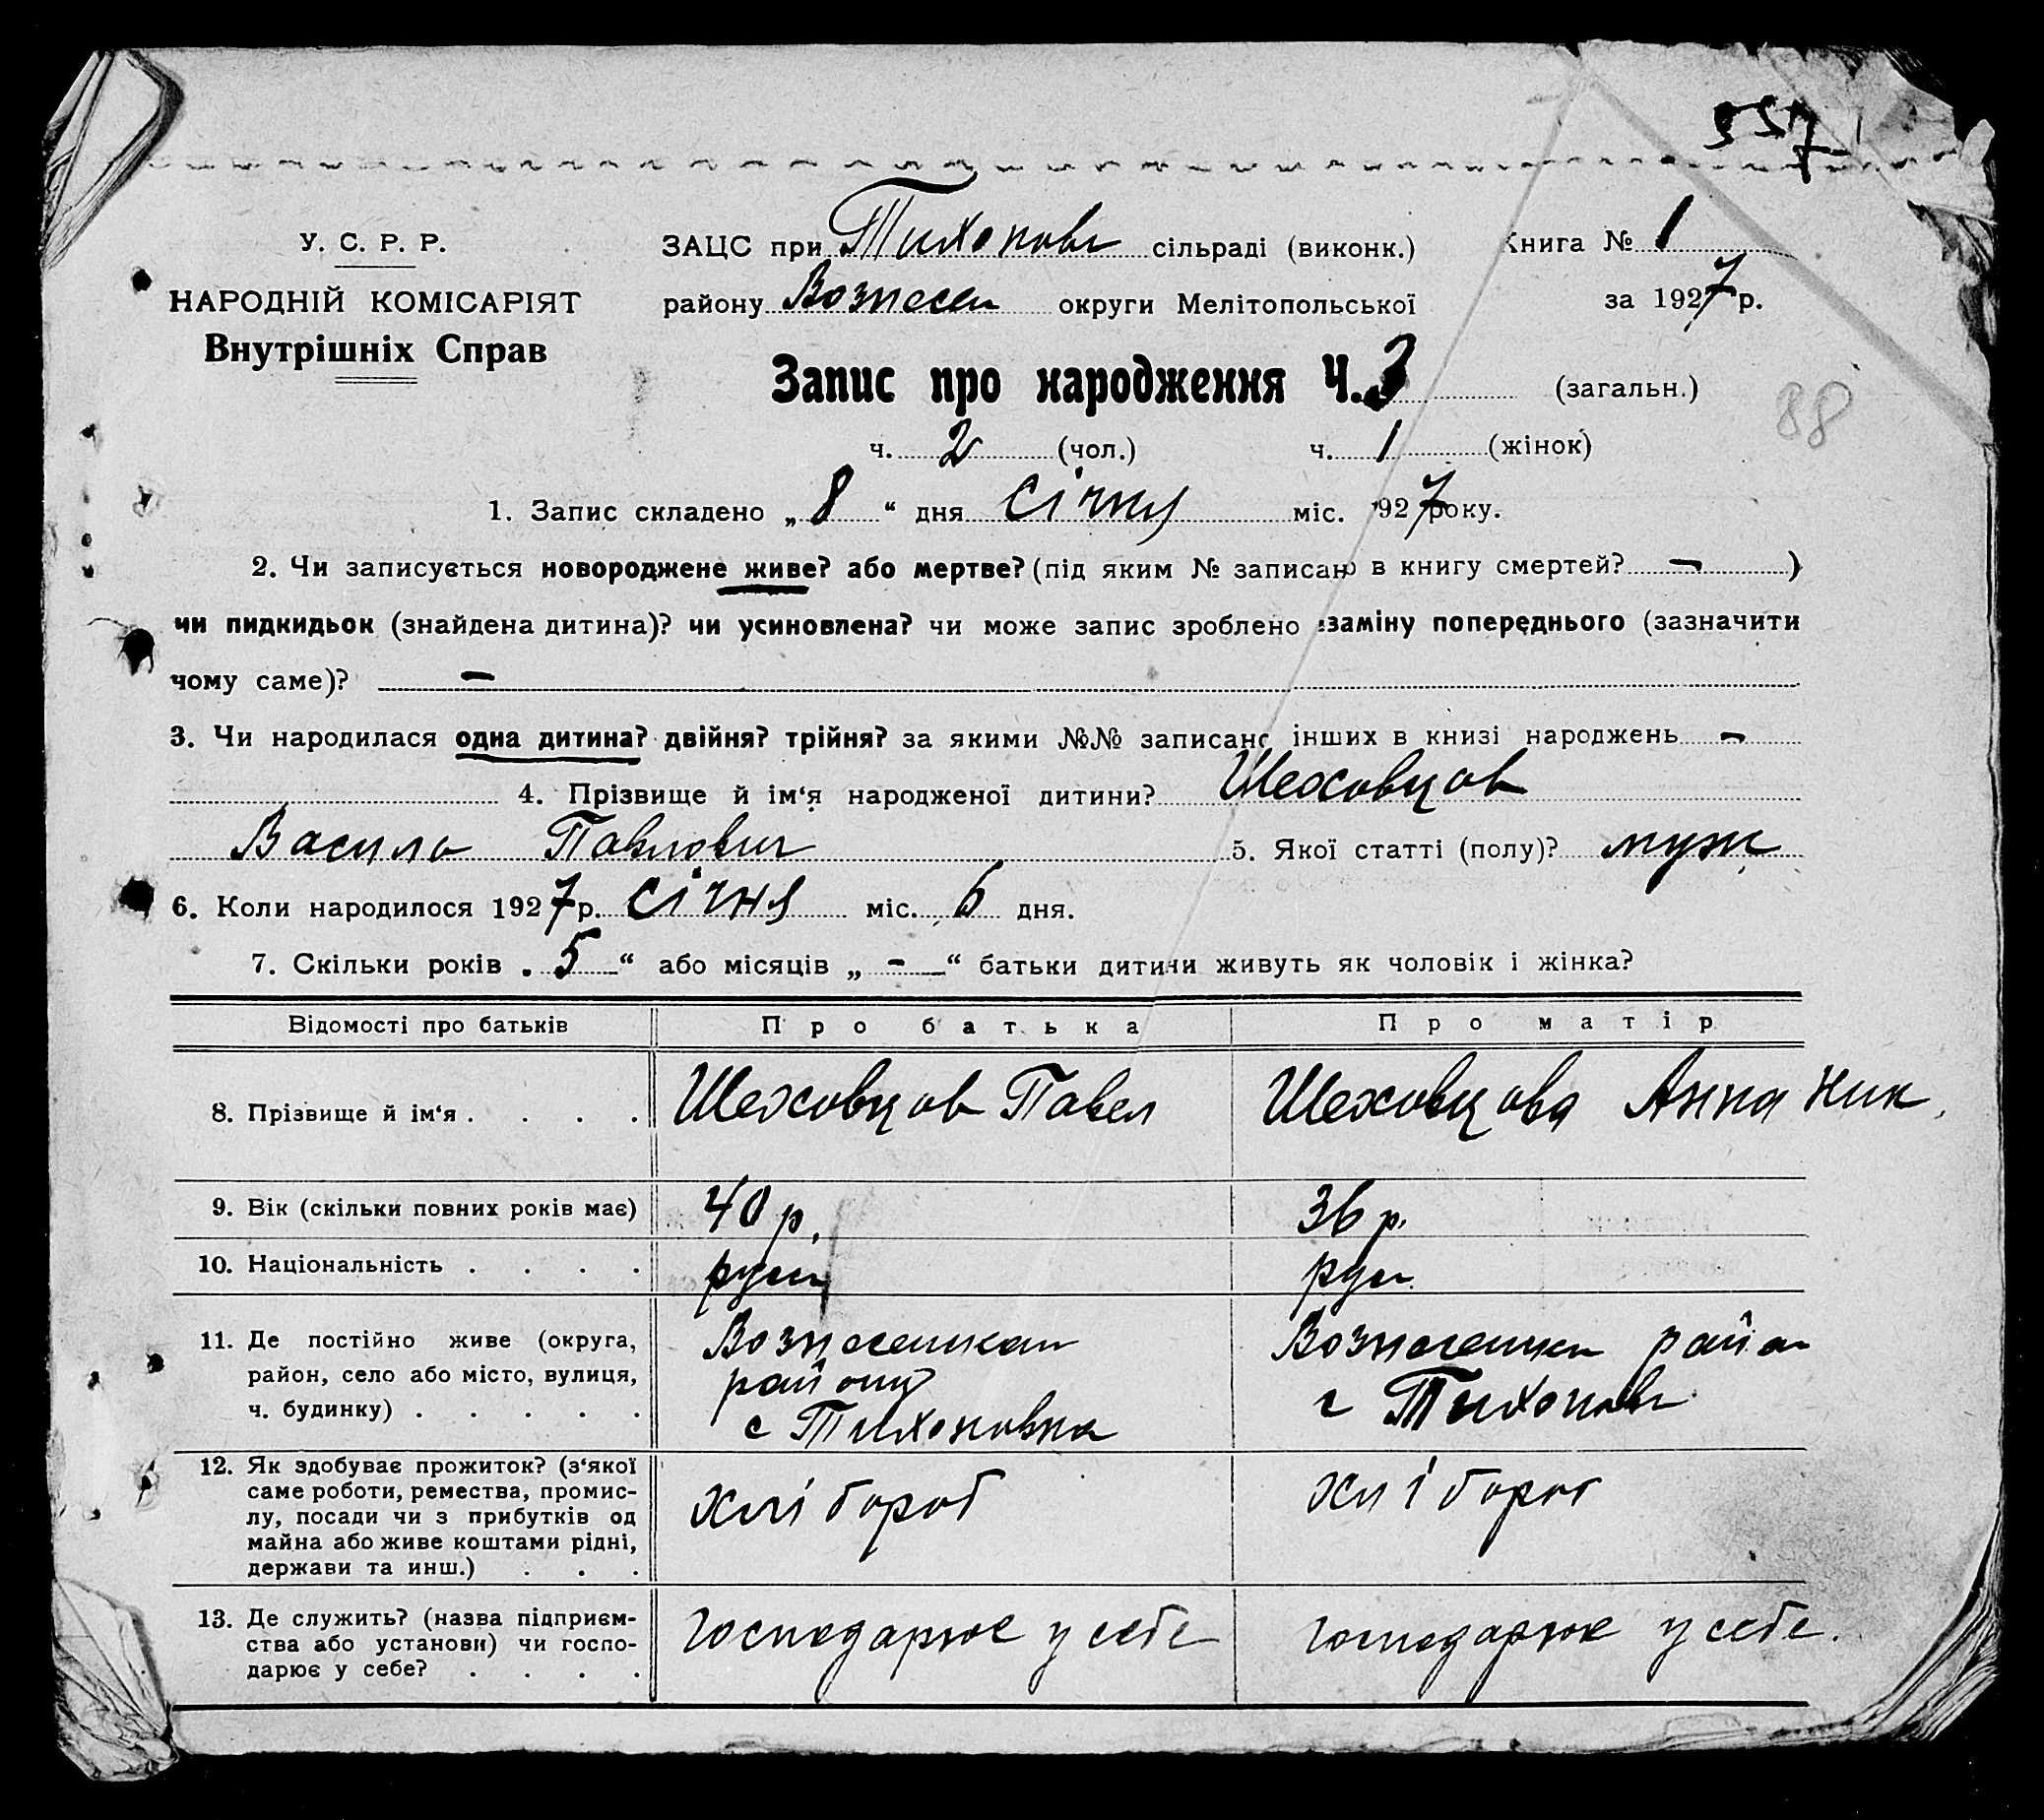 557
У. С. Р. Р.
НАРОДНІЙ КОМІСАРІЯТ
Внутрішніх Справ
ЗАЦС при Тихонов сільраді (виконк.)
району Вознесен округи Мелітопольської
Книга № 1
за 1927 р.
Запис про народження Ч. 3 (загальн.)
88
ч. 2 (чол.) ч. 1 (жінок)
1. Запис складено „ 8 “ дня Січня міс. 1927 року.
2. Чи записується новороджене живе? або мертве? (під яким № записано в книгу смертей? — )
чи пидкидьок (знайдена дитина)? чи усиновлена? чи може запис зроблено взаміну попереднього (зазначити
чому саме)? —
3. Чи народилася одна дитина? двійня? трійня? за якими №№ записано інших в книзі народжень —
4. Прізвище й ім‘я народженої дитини? Шеховцов
Василь Павлович 5. Якої статті (полу)? муж
6. Коли народилося 1927 р. Січня міс. 6 дня.
7. Скільки років „ 5 “ або місяців „ - “ батьки дитини живуть як чоловік і жінка?
Відомості про батьків Про батька Про матір
8. Прізвище й ім‘я . . . . Шеховцов Павел Шеховцова Анна Ник.
9. Вік (скільки повних років має) 40 р. 36 р.
10. Національність . . . . руск рус.
11. Де постійно живе (округа,
район, село або місто, вулиця,
ч. будинку) . . . . .
Вознесенкан
району
с Тихоновка
Вознесенск район
с Тихонов
12. Як здобуває прожиток? (з‘якої
саме роботи, ремества, промис-
лу, посади чи з прибутків од
майна або живе коштами рідні,
держави та инш.) . . .
хлібороб
хлібороб
13. Де служить? (назва підприєм-
ства або установи) чи госпо-
дарює у себе? . . . .
господарює у себе
господарює у себе.